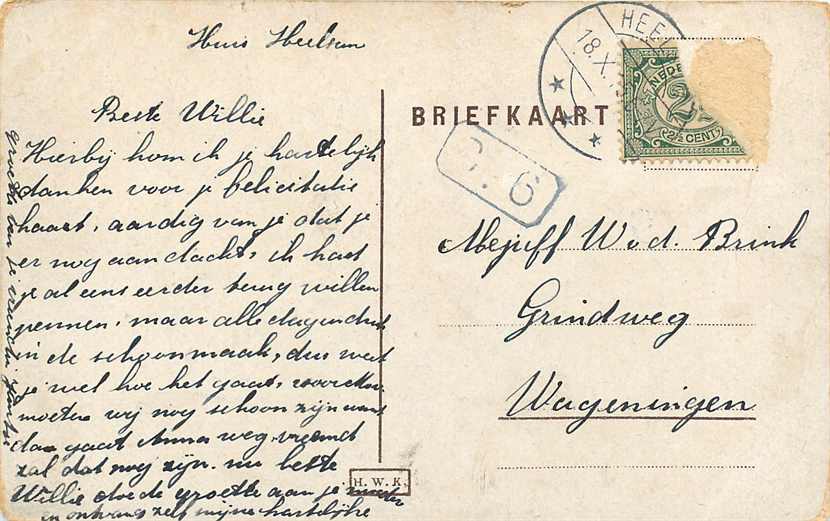 Huis Heelsum
Beste Willie
Hierbij kom ik je hartelijk
danken voor je felicitatie
kaart, aardig van je dat je
er nog aan dacht, ik had
je al eens eerder terug willen
pennen, maar alle dagen druk
in de schoonmaak, dus weet
je wel hoe het gaat,
moeten wij nog schoon zijn want
dan gaat Anna weg, vreemd
zal dat nog zijn. nu beste
Willie doe de groeten aan je
en ontvang zelf mijne hartelijke
Groeten van je vriendin
BRIEFKAART
HEEL
18.X.
NEDE
2½ CENT
C. 6
Mejuff W. v. d. Brink
Grindweg
Wageningen
H. W. K.